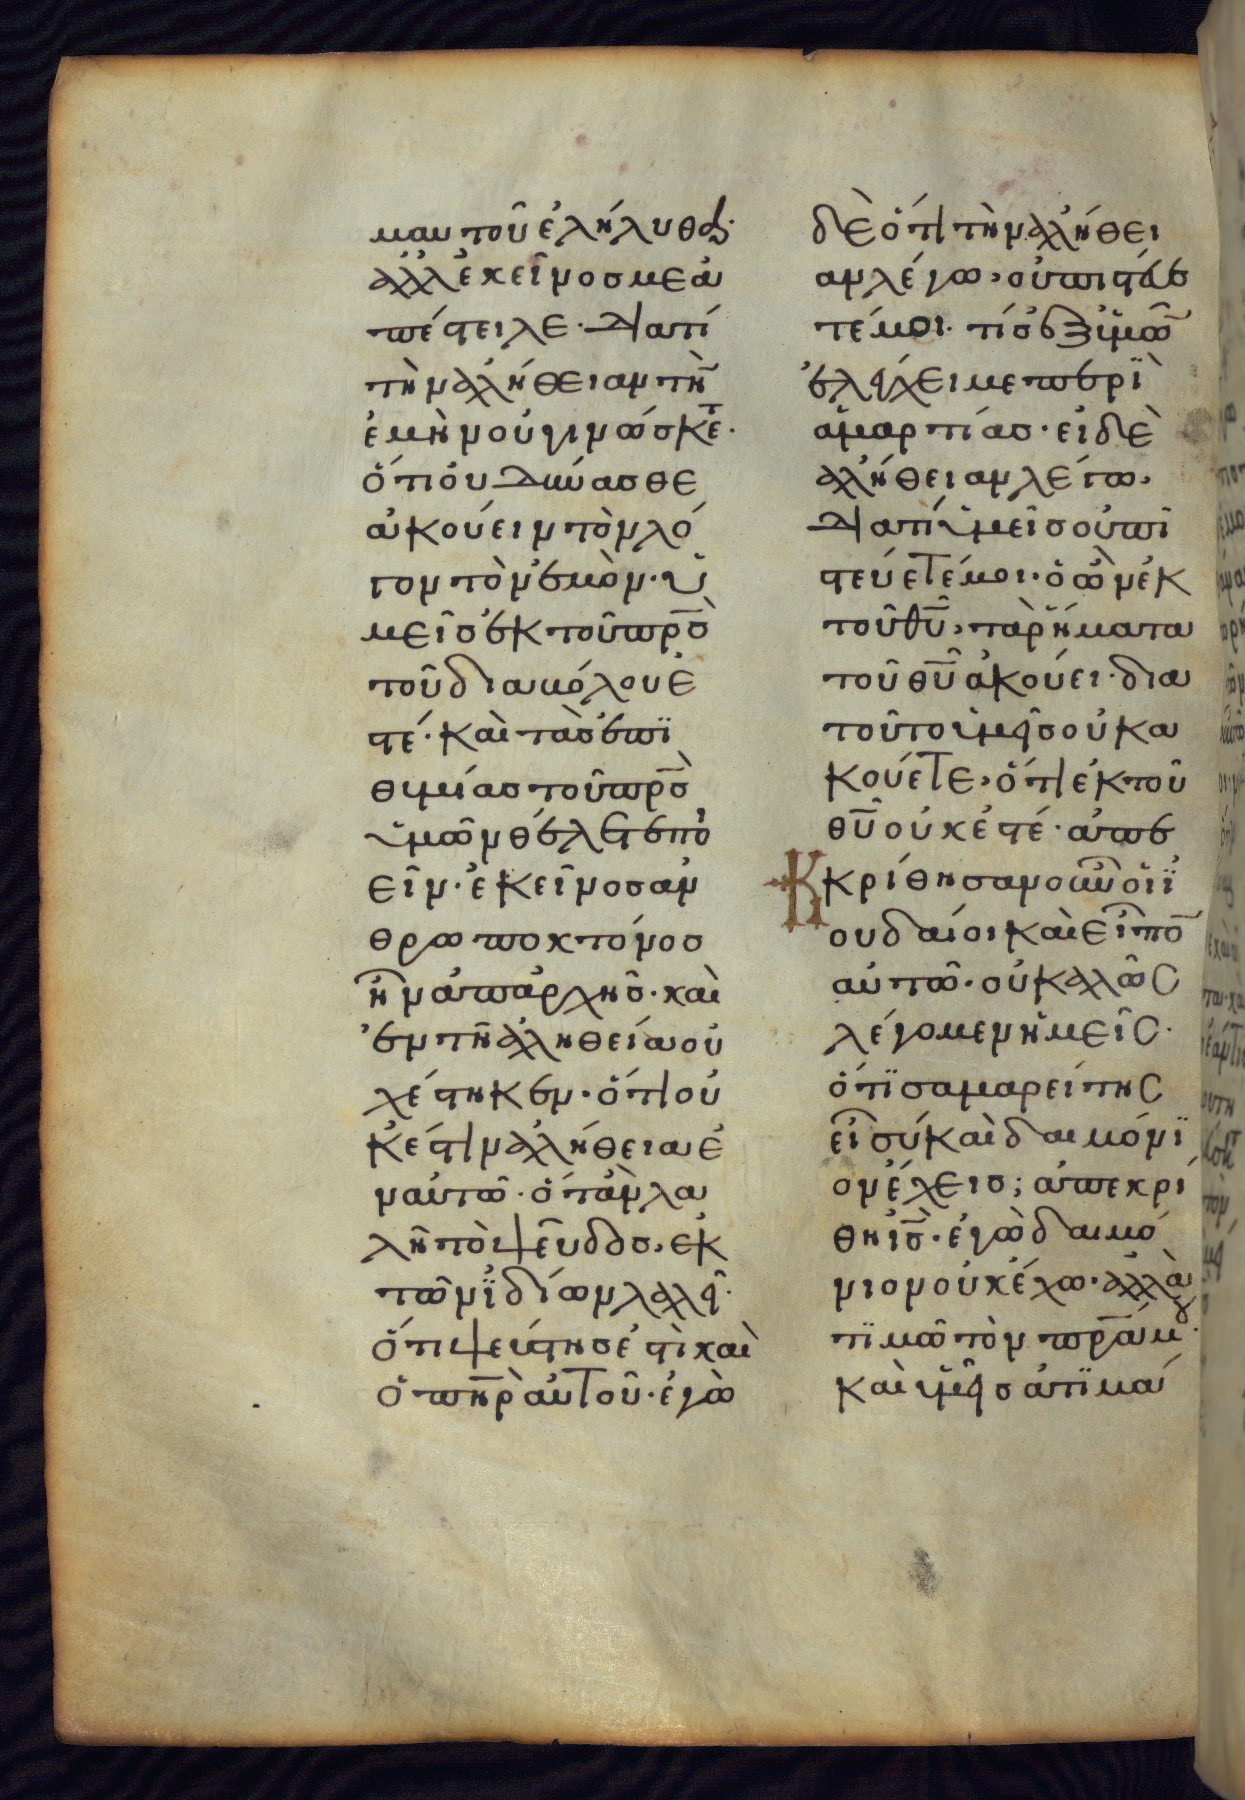 μαυτοῦ ἐλήλυθα·
ἀλλ' ἐκεῖνος με ἀ
πέστειλε· διατί
τὴν ἀλήθειαν τὴν
ἐμὴν οὐ γινώσκετε·
ὅτι οὐ δύνασθε
ἀκούειν τὸν λό
γον τὸν ἐμὸν· ὑ
μεῖς ἐκ τοῦ πρ̅ς̅
τοῦ διαβόλου ἐ
στέ· καὶ τὰς ἐπι
θυμίας τοῦ πρ̅ς̅
ὑμῶν θέλετε ποι
εῖν· ἐκεῖνος ἀν
θρωποκτόνος
ἦν ἀπ' ἀρχῆς· καὶ
ἐν τῇ ἀληθεία οὐ
χ ἕστηκεν· ὅτι οὐ
κ ἔστιν ἀλήθεια ἐ
ν αὐτῶ· ὅταν λα
λῇ τὸ ψεῦδος, ἐκ
τῶν ἰδίων λαλεῖ·
ὅτι ψεύστης ἐστὶ καὶ
ὁ πη̅ρ̅ αὐτοῦ· ἐγὼ
δὲ ὅτι τὴν ἀλήθει
αν λέγω, οὐ πιστεύε
τέ μοι· τίς ἐξ ὑμῶν
ἐλέγχει με περὶ
ἁμαρτίας· εἰ δὲ
ἀλήθειαν λέγω,
διατί ὑμεῖς οὐ πι
στεύετέ μοι· ὁ ὢν ἐκ
τοῦ θυ̅, τὰ ῥήματα
τοῦ θυ̅ ἀκούει· δια
τοῦτο ὑμεῖς οὐκ ἀ
κούετε, ὅτι ἐκ τοῦ
θυ̅ οὐκ ἐστέ· ἀπε
κρίθησαν οὖν οἱ ἰ
ουδαίοι καὶ εἶπον
αὐτῶ· οὐ καλῶς
λέγομεν ἡμεῖς·
ὅτι σαμαρείτης
εἶ σύ καὶ δαιμόνι
ον ἔχεις; ἀπεκρί
θη ις̅· ἐγὼ δαιμό
νιον οὐκ ἔχω· ἀλλὰ
τιμῶ τὸν πρ̅α̅ μου·
καὶ ὑμεῖς ἀτιμά